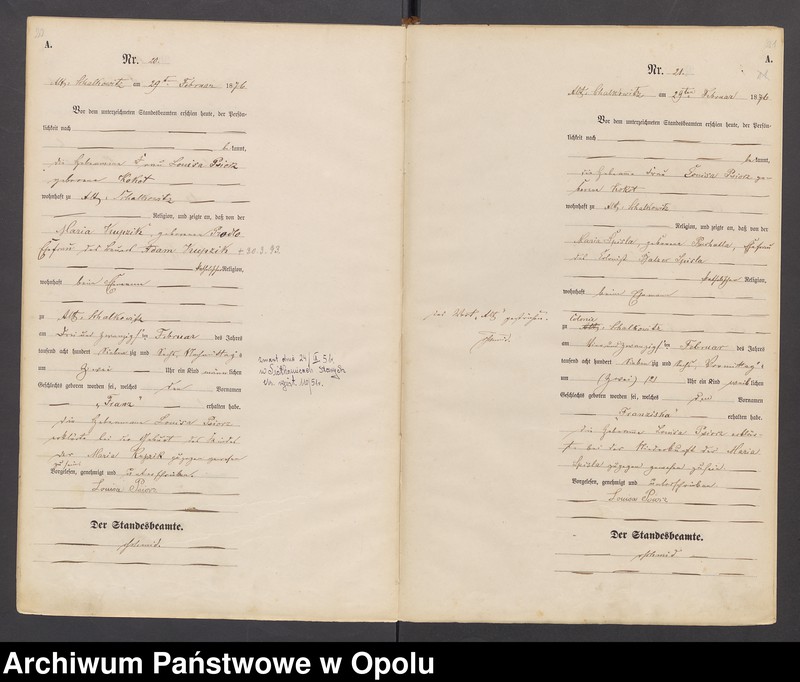 A.
Nr. 20.
Alt-Schalkowitz am 29ten Februar 1876.
Vor dem unterzeichneten Standesbeamten erschien heute, der Persön-
lichkeit nach
bekannt,
die Hebamme Frau Louisa Psiorz
geborene Kokot
wohnhaft zu Alt-Schalkowitz
Religion, und zeigte an, daß von der
Maria Kupzik, geborene
Ehefrau des Adam Kupzik + 30.3.93
katholischer Religion,
wohnhaft beim Ehemann
zu Alt-Schalkowitz
am Drei und zwanzigsten Februar des Jahres
tausend acht hundert siebenzig und sechs, Nachmittags
um Zwei Uhr ein Kind männlichen
Geschlechts geboren worden sei, welches den Vornamen
„Franz“ erhalten habe.
Die Hebamme Louisa Psiorz
erklärte bei der Geburt des Kindes
der Maria Kupzik zugegen gewesen
zu sein.
Vorgelesen, genehmigt und unterschrieben
Louisa Psiorz
Der Standesbeamte.
Schmid
zmarł dnia 24/II 54
w Siołkowicach Starych
nr 10/54.
A.
Nr. 21.
Alt-Schalkowitz am 29ten Februar 1876
Vor dem unterzeichneten Standesbeamten erschien heute, der Persön-
lichkeit nach
bekannt,
die Hebamme Frau Louisa Psiorz ge-
borene Kokot
wohnhaft zu Alt-Schalkowitz
Religion, und zeigte an, daß von der
Maria Spisla, geborene Ehefrau
des Colonist Spisla
katholischer Religion,
wohnhaft beim Ehemann
Colonie
zu Alt-Schalkowitz
am zwanzigsten Februar des Jahres
tausend acht hundert siebenzig und sechs, Vormittags
um (Zwei) Uhr ein Kind weiblichen
Geschlechts geboren worden sei, welches den Vornamen
„Franziska“ erhalten habe.
Die Hebamme Louisa Psiorz
bei der Niederkunft der Maria
Spisla zugegen gewesen zu sein.
Vorgelesen, genehmigt und unterschrieben
Louisa Psiorz
Der Standesbeamte.
Schmid
das Wort „Alt“ gestrichen.
Schmid.
Archiwum Państwowe w Opolu